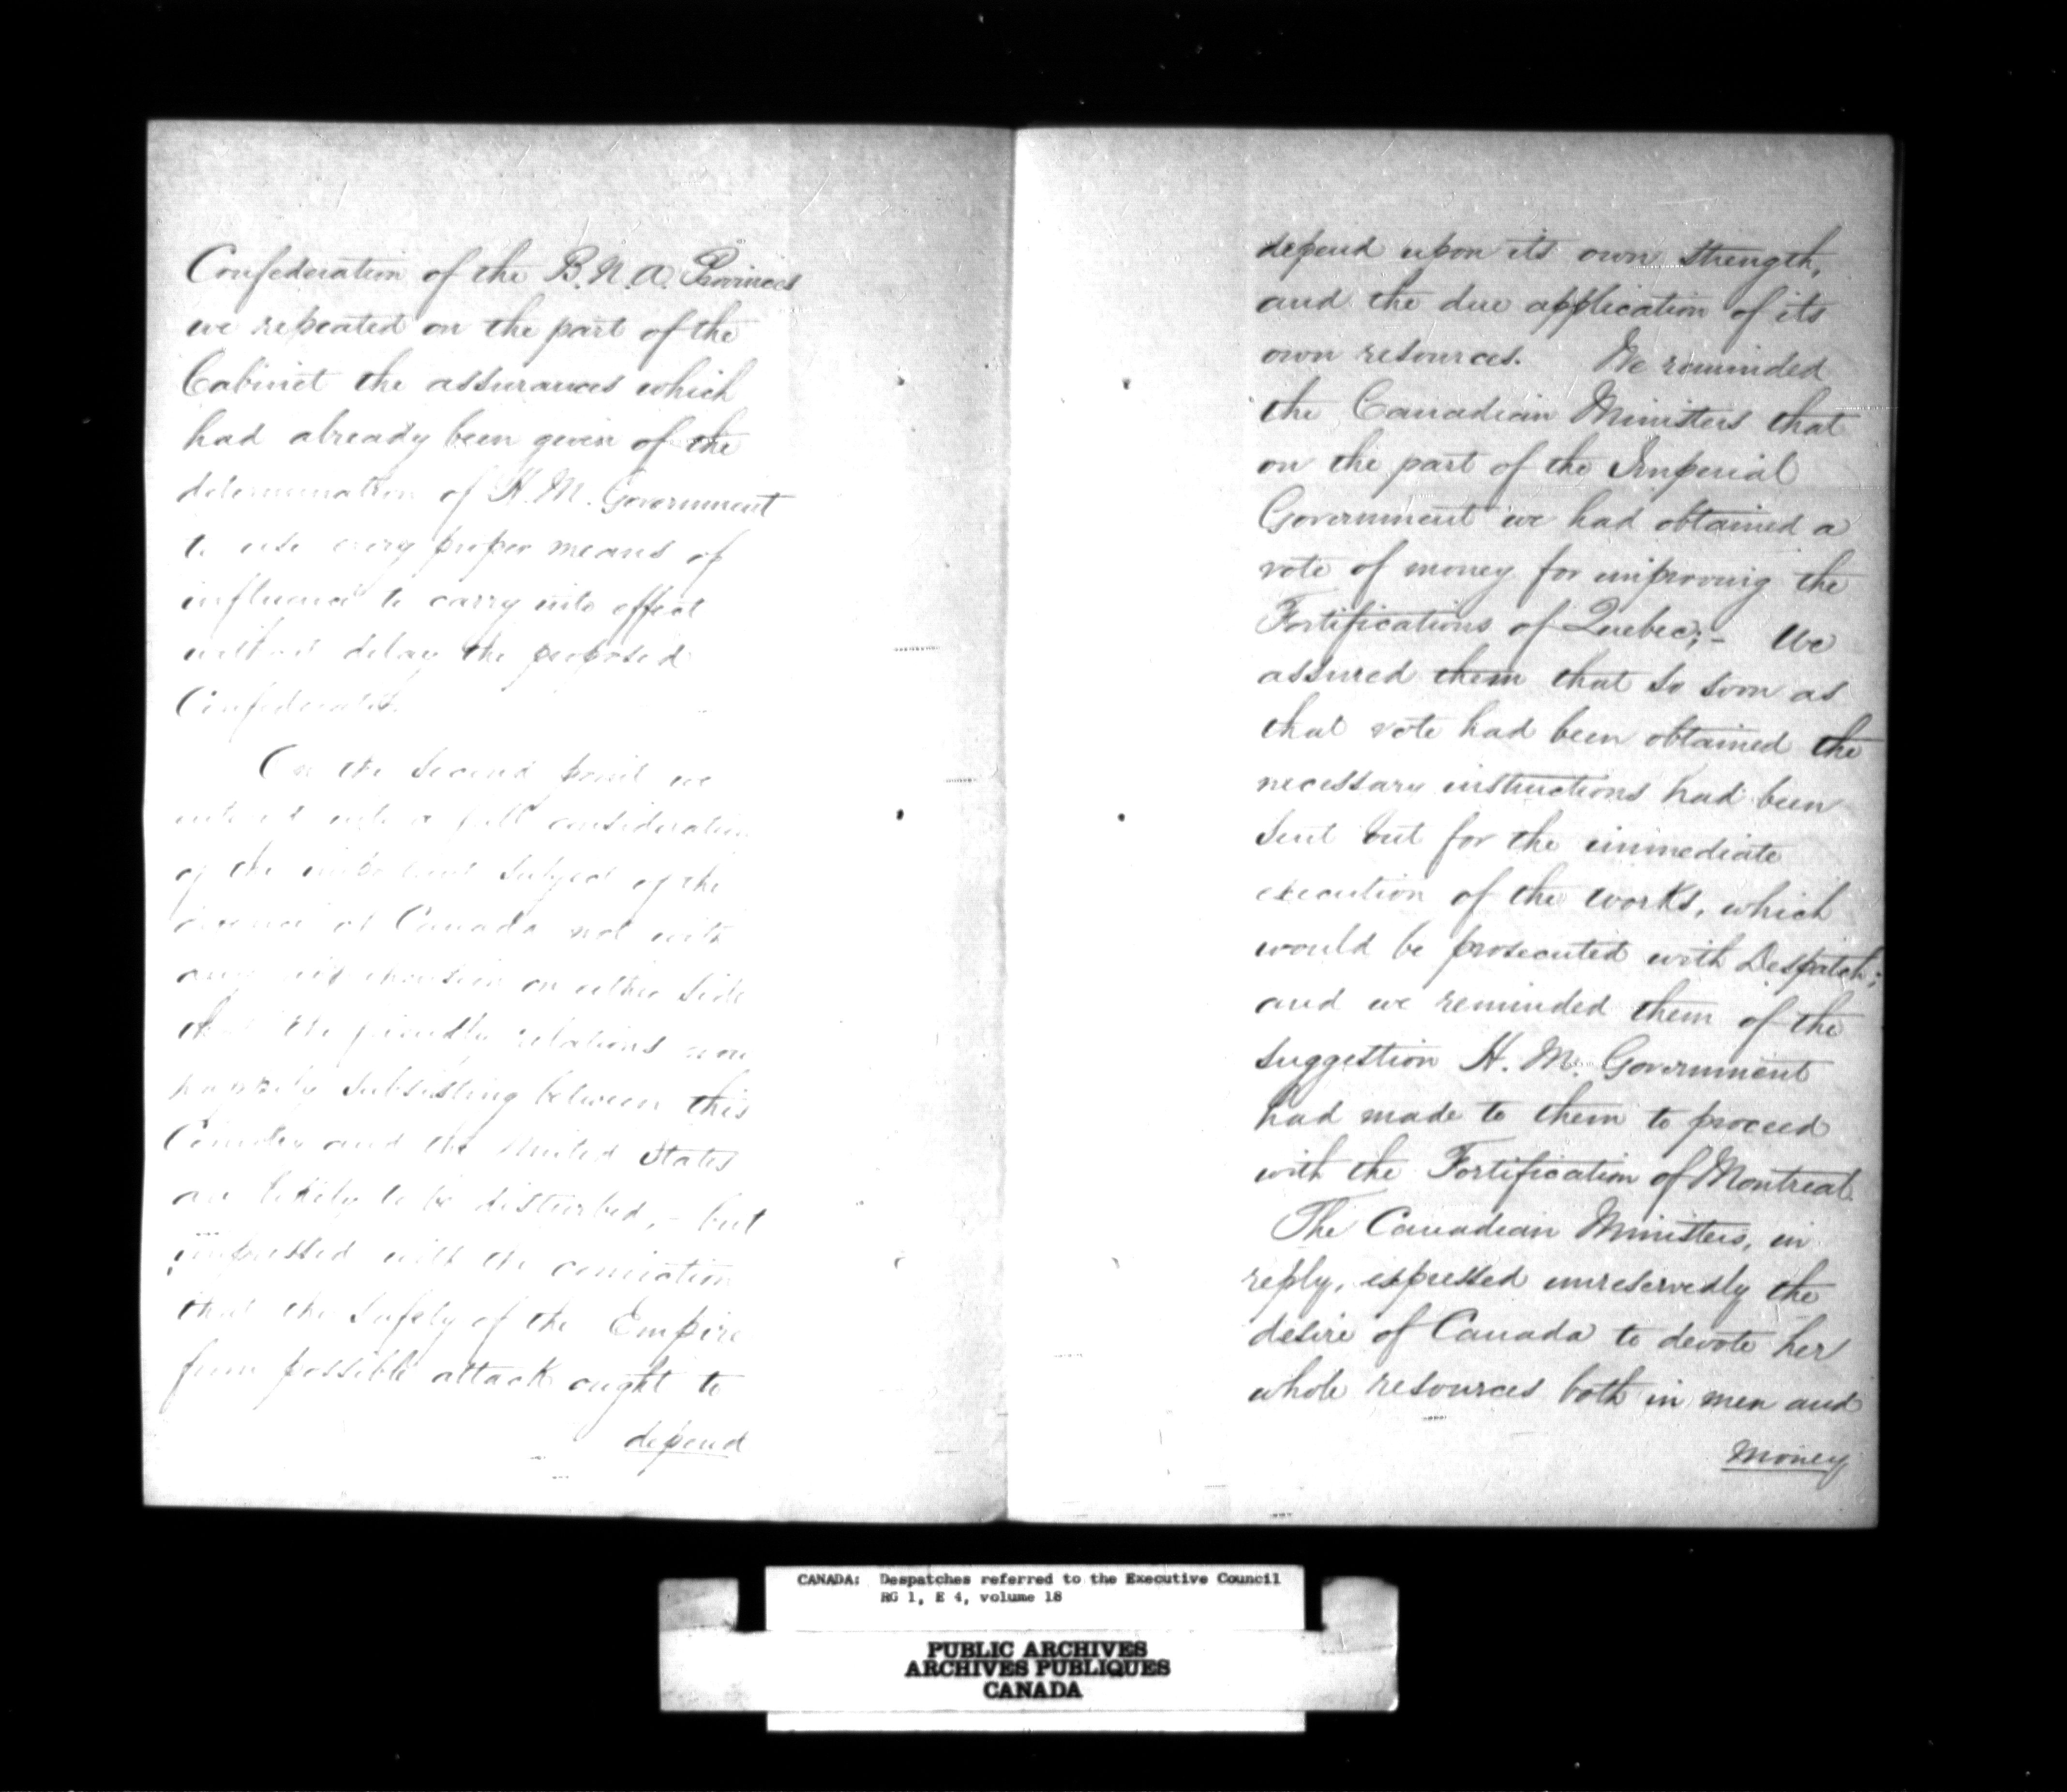 Confederation of the B.N.A. Provinces
we repeated on the part of the
Cabinet the assurances which
had already been given of the
determination of H.M. Government
to use every proper means of
influence to carry into effect
without delay the proposed
Confederation.
On the second point we
entered into a full consideration
of the important subject of the
defence of Canada not with
any apprehension on either side
that the friendly relations now
happily subsisting between this
Country and the United States
are likely to be disturbed, - but
impressed with the conviction
that the safety of the Empire
from possible attack ought to
depend
depend upon its own strength,
and the due application of its
own resources. We reminded
the Canadian Ministers that
on the part of the Imperial
Government we had obtained a
vote of money for improving the
Fortifications of Quebec; - We
assured them that so soon as
that vote had been obtained the
necessary instructions had been
sent out for the immediate
execution of the works, which
would be prosecuted with Despatch;
and we reminded them of the
suggestion H. M. Government
had made to them to proceed
with the Fortification of Montreal.
The Canadian Ministers, in
reply, expressed unreservedly the
desire of Canada to devote her
whole resources both in men and
money
CANADA: Despatches referred to the Executive Council
RG 1, E 4, volume 18
PUBLIC ARCHIVES
ARCHIVES PUBLIQUES
CANADA